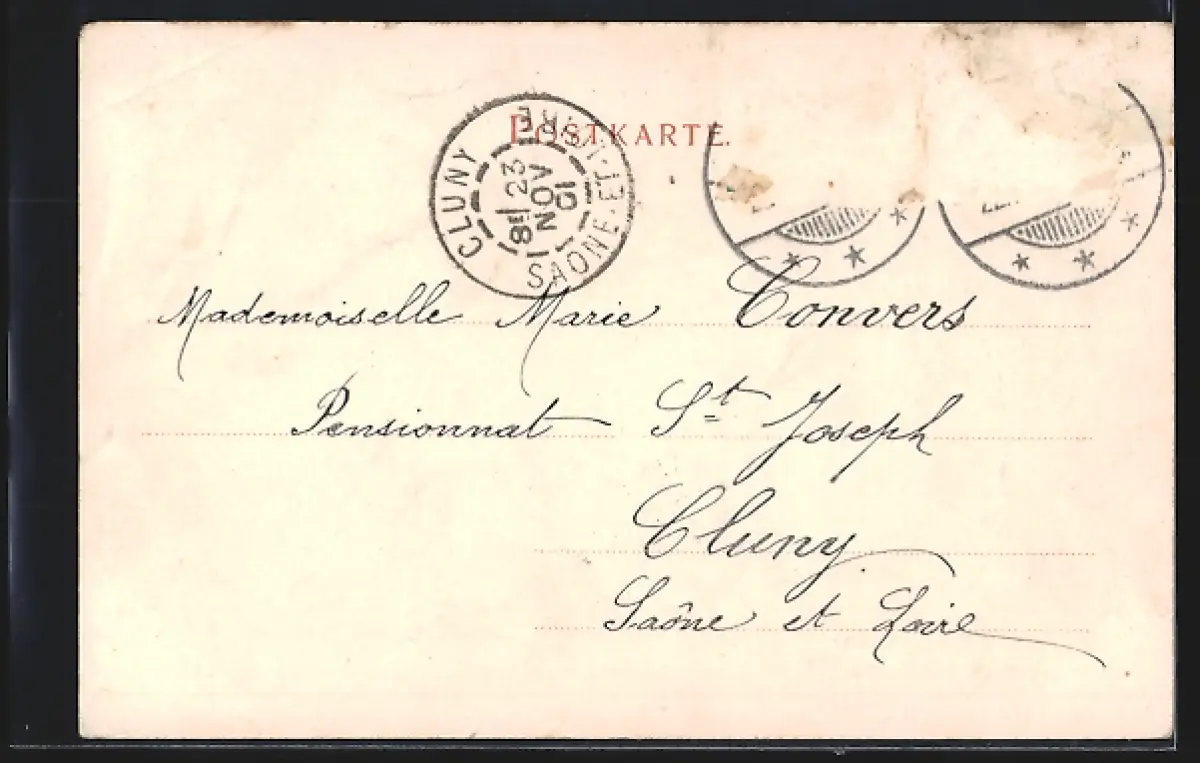 POSTKARTE.
CLUNY
SAONE-ET-LOIRE
8E 23
NOV
01
Mademoiselle Marie Convers
Pensionnat St Joseph
Cluny
Saône et Loire